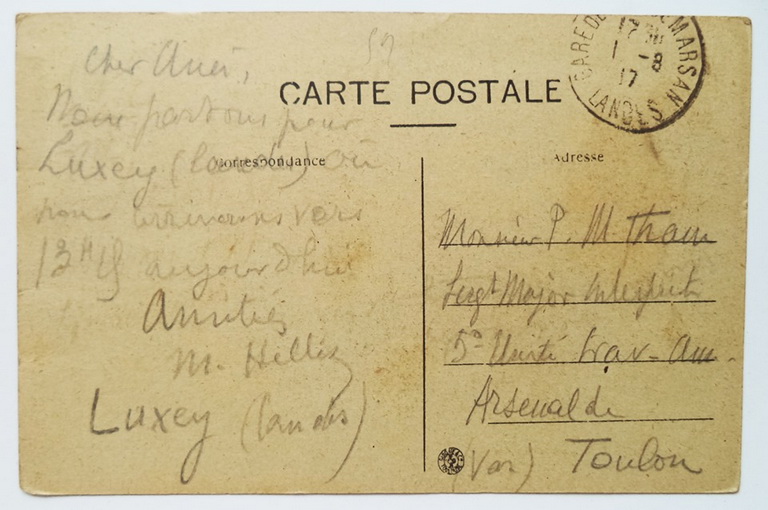 52
cher Ami,
CARTE POSTALE
GARE DE MARSAN
1 -8
17
LANDES
Nous partons pour
Correspondance
Luxey (landes) où
nous arriverons vers
13H 15 aujourd'hui
Amitiés
M. Hellis
Luxey (landes)
Adresse
Monsieur P. M. Tham
Sergt Major Interprète
5e Unité trav - Am.
Arsenal de
(Var) Toulon